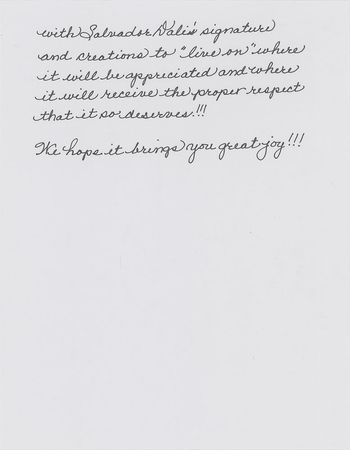 with Salvador Dali's signature
and creations to "live on" where
it will be appreciated and where
it will receive the proper respect
that it so deserves!!!
We hope it brings you great joy!!!